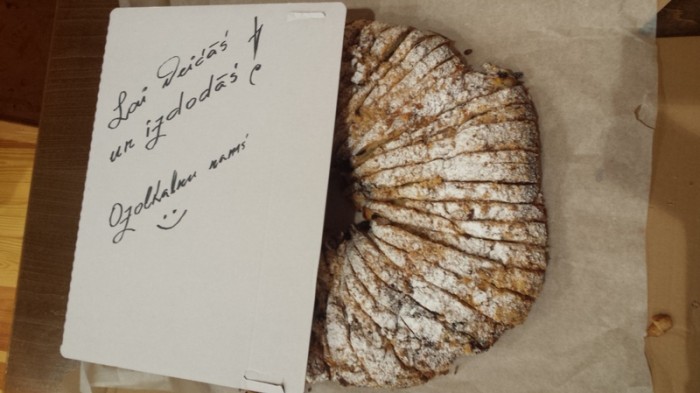 Lai Veicās
un izdodās!
Ozolkalnu nams
:)